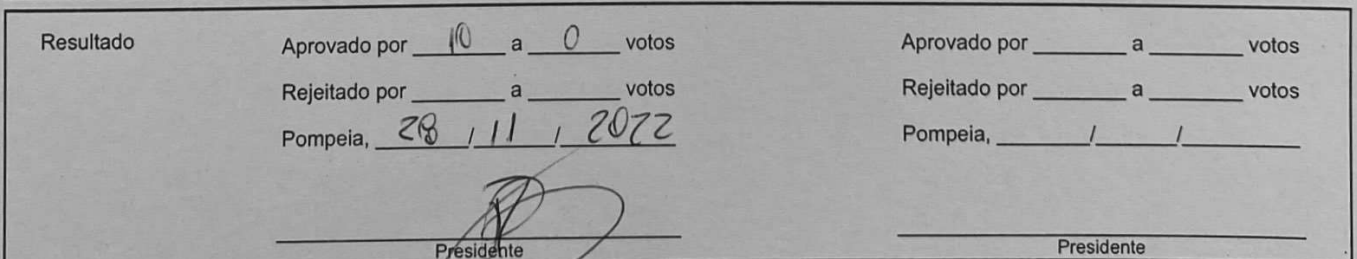 Resultado
Aprovado por 10 a 0 votos
Rejeitado por ______ a ______ votos
Pompeia, 28 / 11 / 2022
Presidente
Aprovado por ______ a ______ votos
Rejeitado por ______ a ______ votos
Pompeia, ______/______/______
Presidente